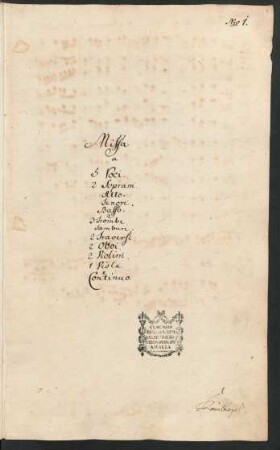 No 1.
Missa
a
5 Voci.
2 Soprani
Alto.
Tenore.
Basso.
3 Trombe
Tamburi
2 Traversi
2 Oboi
2 Violini
1 Viola
e
Continuo